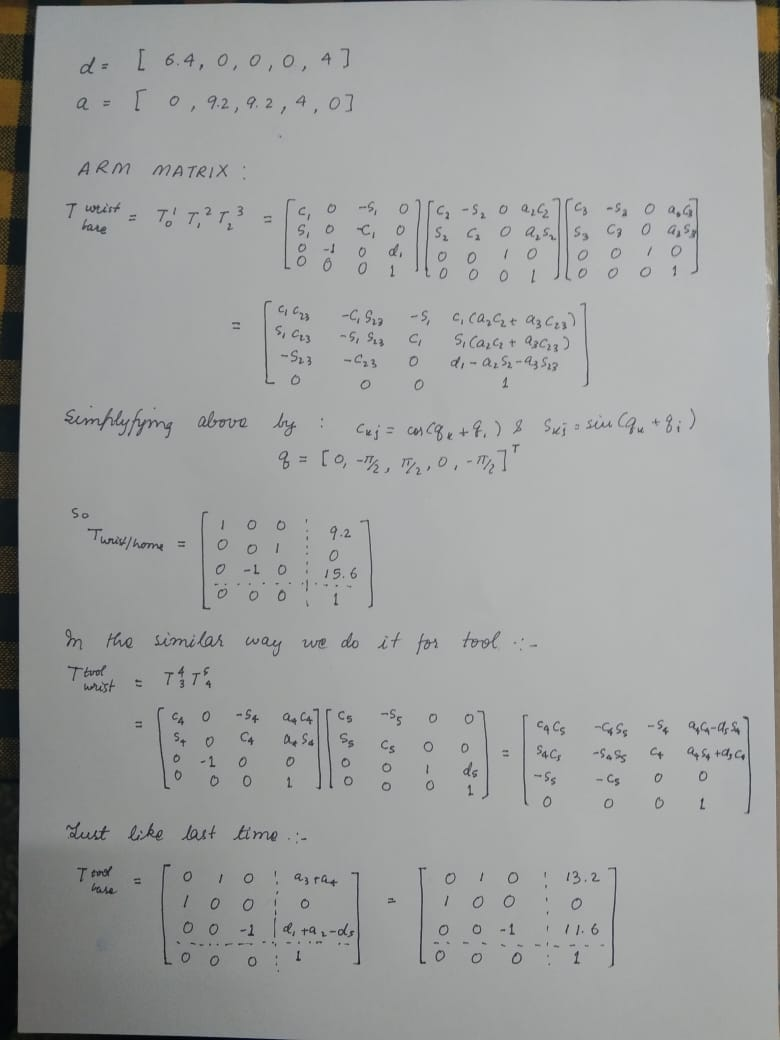 d = [ 6.4, 0, 0, 0, 4 ]
a = [ 0, 9.2, 9.2, 4, 0 ]
ARM MATRIX :
T wrist base = T₀¹ T₁² T₂³ = [ C₁ 0 -S₁ 0 ; S₁ 0 -C₁ 0 ; 0 -1 0 d₁ ; 0 0 0 1 ] [ C₂ -S₂ 0 a₂C₂ ; S₂ C₂ 0 a₂S₂ ; 0 0 1 0 ; 0 0 0 1 ] [ C₃ -S₃ 0 a₃C₃ ; S₃ C₃ 0 a₃S₃ ; 0 0 1 0 ; 0 0 0 1 ]
= [ C₁C₂₃ -C₁S₂₃ -S₁ C₁(a₂C₂ + a₃C₂₃) ; S₁C₂₃ -S₁S₂₃ C₁ S₁(a₂C₂ + a₃C₂₃) ; -S₂₃ -C₂₃ 0 d₁-a₂S₂-a₃S₂₃ ; 0 0 0 1 ]
Simplyfying above by : Cₖⱼ = cos(qₖ + qⱼ) & Sₖⱼ = sin(qₖ + qⱼ)
q = [0, -π/2, π/2, 0, -π/2]ᵀ
So
T wrist/home = [ 1 0 0 9.2 ; 0 0 1 0 ; 0 -1 0 15.6 ; 0 0 0 1 ]
In the similar way we do it for tool :-
T tool wrist = T₃⁴ T₄⁵
= [ C₄ 0 -S₄ a₄C₄ ; S₄ 0 C₄ a₄S₄ ; 0 -1 0 0 ; 0 0 0 1 ] [ C₅ -S₅ 0 0 ; S₅ C₅ 0 0 ; 0 0 1 d₅ ; 0 0 0 1 ] = [ C₄C₅ -C₄S₅ -S₄ a₄C₄-d₅S₄ ; S₄C₅ -S₄S₅ C₄ a₄S₄+d₅C₄ ; -S₅ -C₅ 0 0 ; 0 0 0 1 ]
Just like last time :-
T tool base = [ 0 1 0 a₃+a₄ ; 1 0 0 0 ; 0 0 -1 d₁+a₂-d₅ ; 0 0 0 1 ] = [ 0 1 0 13.2 ; 1 0 0 0 ; 0 0 -1 11.6 ; 0 0 0 1 ]